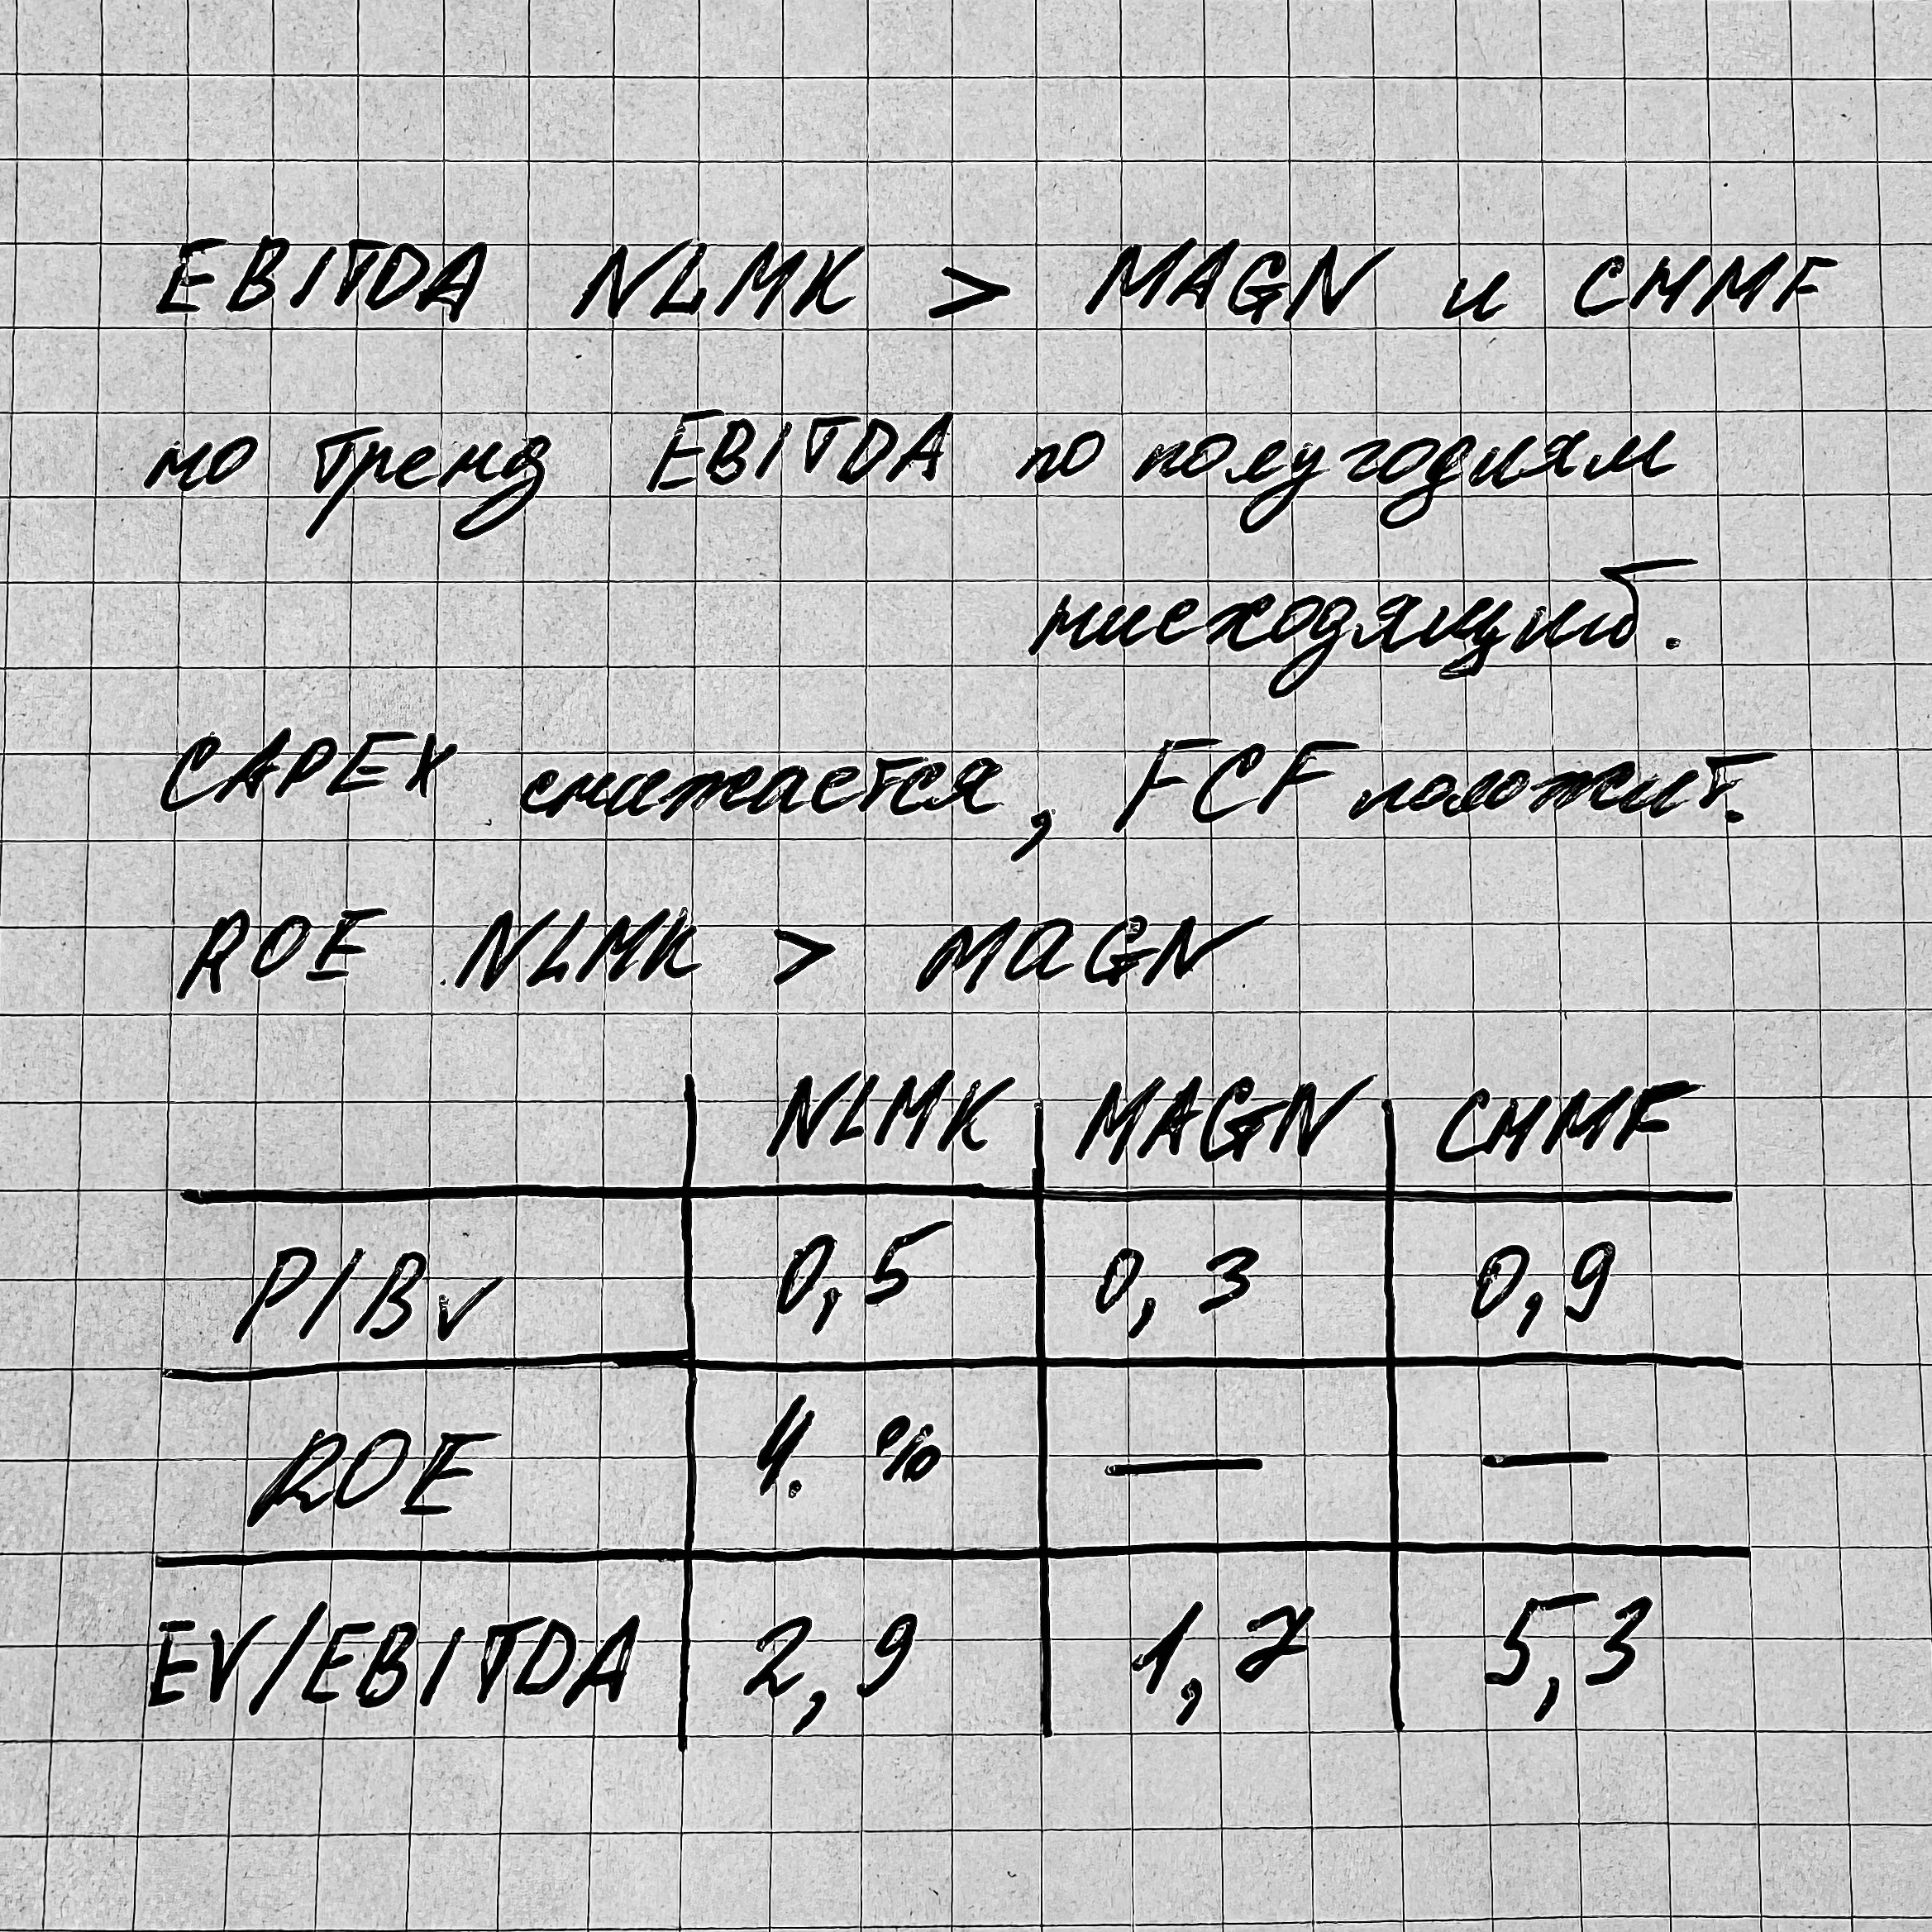 EBITDA NLMK > MAGN и CHMF
но тренд EBITDA по полугодиям
нисходящий.
CAPEX снижается, FCF положит.
ROE NLMK > MAGN
NLMK MAGN CHMF
P/BV 0,5 0,3 0,9
ROE 4. % — —
EV/EBITDA 2,9 1,7 5,3